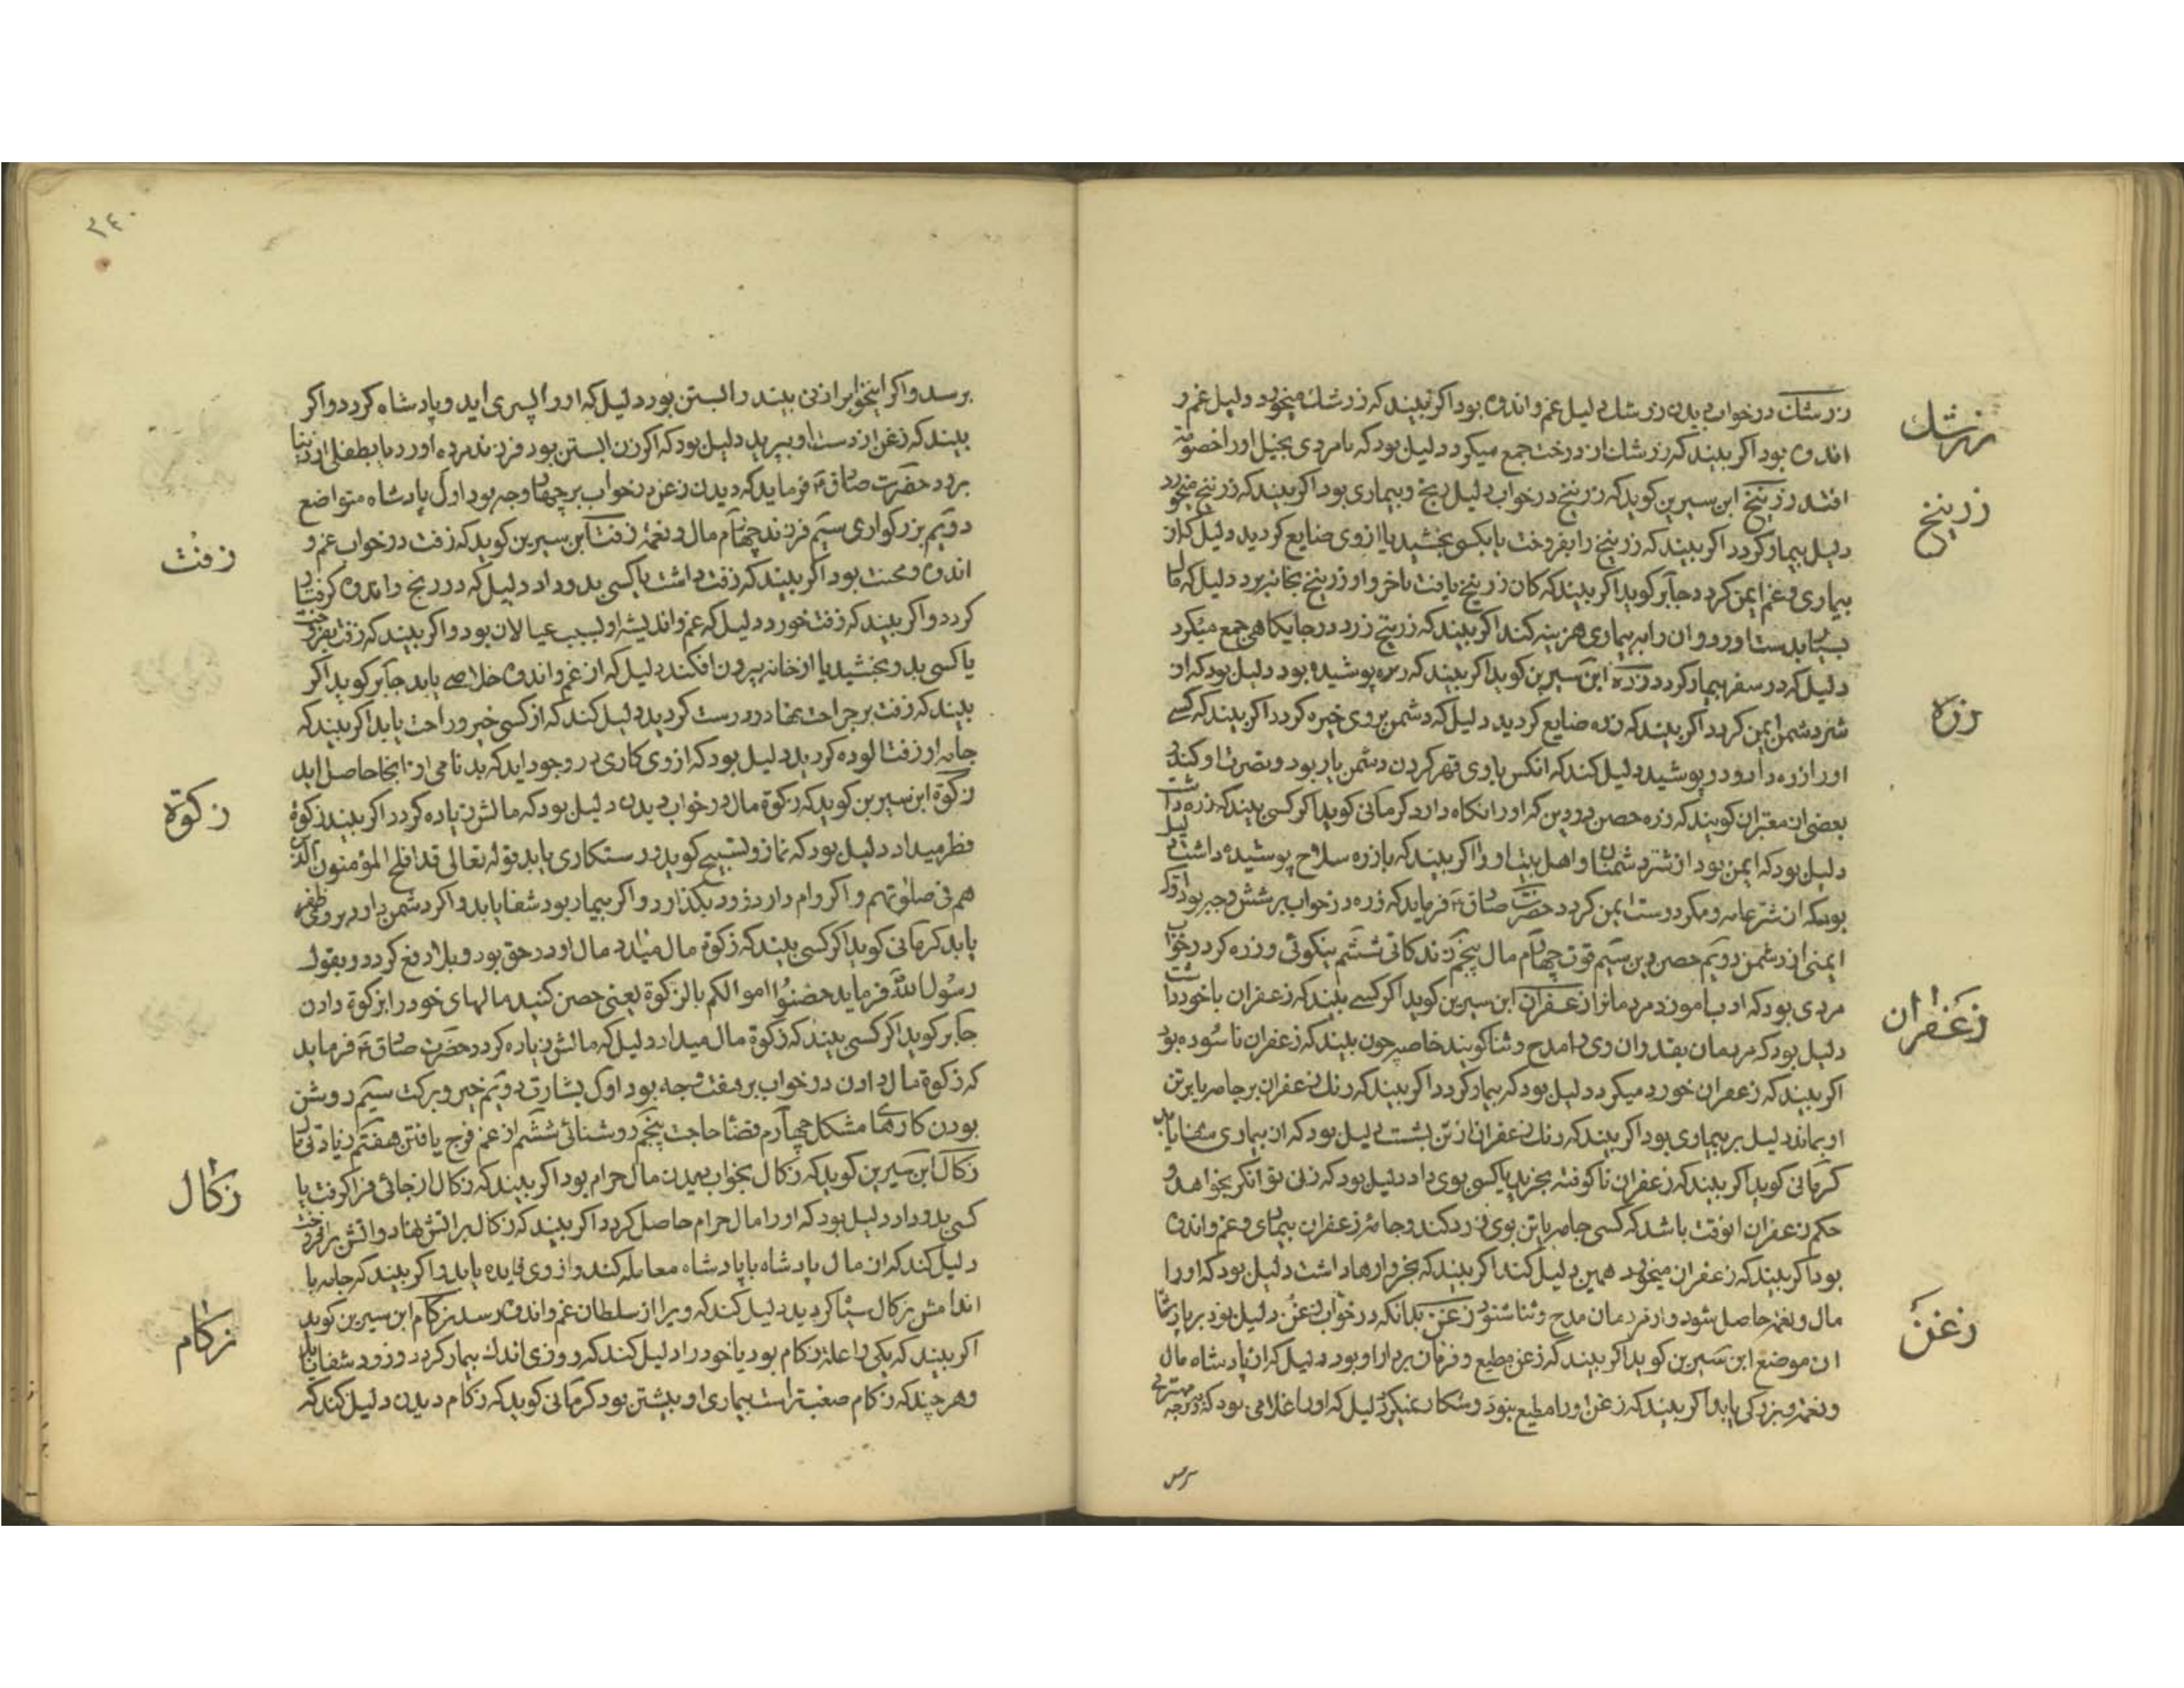 زرشك
زرشك در خواب دیدن زرشك دلیل غم و اندوه بود اکر بیند که زرشك میخورد دلیل غم و
اندوه بود اکر بیند که زرشك از درخت جمع میکرد دلیل بود که با مردی بخیل او را خصومة
زرنیخ
افتد زرنیخ ابن سیرین کوید که زرنیخ در خواب دلیل رنج و بیماری بود اکر بیند که زرنیخ میخورد
دلیل بیمار کردد اکر بیند که زرنیخ را بفروخت یا بکسی بخشید یا از وی ضایع کردید دلیل که از
بیماری و غم ایمن کردد جابر کوید اکر بیند که کان زرنیخ یافت و از زرنیخ بخانه برد دلیل که مال
بدست اورد و ان را به بیماری هزینه کند اکر بیند که زرنیخ زرد در جایکاهی جمع میکرد
زره
دلیل که در سفر بیمار کردد زره ابن سیرین کوید اکر بیند که زره پوشیده بود دلیل بود که از
شر دشمن ایمن کردد اکر بیند که زره ضایع کردید دلیل که دشمن بر وی خیره کردد اکر بیند که کسی
او را زره داد و در پوشید دلیل کند که انکس با وی قهر کردن دشمن یار بود و نصرت او کند
بعضی از معبران کویند که زره حصن بود دین که او را نکاه دارد کرمانی کوید اکر کسی بیند که زره داشت
دلیل بود که ایمن بود از شر دشمنان و اهل بیت او و اکر بیند که با زره سلاح پوشیده داشت دلیل
بود که از شر عامه و مکر دوست ایمن کردد حضرت صادق ع فرماید که زره در خواب بر شش وجه بود اول
ایمنی از دشمن دویم حصن دین سیم قوت چهارم مال پنجم زندکانی ششم نیکوئی و زره کر در خواب
زعفران
مردی بود که ادب اموزد مردمانرا زعفران ابن سیرین کوید اکر کسی بیند که زعفران با خود داشت
دلیل بود که مردمان بقدر ان وی را مدح و ثنا کویند خاصه چون بیند که زعفران ناسوده بود
اکر بیند که زعفران خورد میکرد دلیل بود که بیمار کردد اکر بیند که رنك زعفران بر جامه یا بر تن
او بماند دلیل بر بیماری بود اکر بیند که رنك زعفران از تن بشست دلیل بود که از بیماری شفا یابد
کرمانی کوید اکر بیند که زعفران ناکوفته بخرید یا کسی بوی داد دلیل بود که زنی توانکر بخواهد و
حکم زعفران انوقت باشد که کسی جامه یا تن بوی زرد کند و جامۀ زعفران بیماری و غم و اندوه
بود اکر بیند که زعفران میخورد همین دلیل کند اکر بیند که بخروارها داشت دلیل بود که او را
زغن
مال و نعمة حاصل شود و از مردمان مدح و ثنا شنود زغن بدانکه در خواب زغن دلیل بود بر پادشاه
ان موضع ابن سیرین کوید اکر بیند که زغن مطیع و فرمان بردار او بود دلیل که از پادشاه مال
و نعمة و بزرکی یابد اکر بیند که زغن او را مطیع نبود و شکار نمیکرد دلیل که او را غلامی بود که بدرجه مهتری
برسد
٢٤٠
برسد و اکر اینخواب را زنی بیند و ابستن بود دلیل که او را پسری اید و پادشاه کردد و اکر
بیند که زغن از دست او بپرید دلیل بود که اکر زن ابستن بود فرزند مرده اورد یا بطفلی از دنیا
برود حضرت صادق ع فرماید که دیدن زغن در خواب بر چهار وجه بود اول پادشاه متواضع
زفت
دویم بزرکواری سیم فرزند چهارم مال و نعمة زفت ابن سیرین کوید که زفت در خواب غم و
اندوه و محنت بود اکر بیند که زفت داشت یا کسی بدو داد دلیل که در رنج و اندوه کرفتار
کردد و اکر بیند که زفت خورد دلیل که غم و اندیشۀ او بسبب عیالان بود و اکر بیند که زفت بفروخت
یا کسی بدو بخشید یا از خانه بیرون افکند دلیل که از غم و اندوه خلاصی یابد جابر کوید اکر
بیند که زفت بر جراحت نهاد و درست کردید دلیل کند که از کسی خیر و راحت یابد اکر بیند که
جامه او زفت الوده کردید دلیل بود که از وی کاری در وجود اید که بدنامی او از انجا حاصل اید
زکوة
زکوة ابن سیرین کوید که زکوة مال در خواب دیدن دلیل بود که مالش زیاده کردد اکر بیند زکوة
فطر میداد دلیل بود که نماز و تسبیح کوید و رستکاری یابد قوله تعالی قد افلح المؤمنون الذین
هم فی صلوتهم و اکر وام دارد زود بکذارد و اکر بیمار بود شفا یابد و اکر دشمن دارد بر وی ظفر
یابد کرمانی کوید اکر کسی بیند که زکوة مال میداد مال او در حق بود و بلا دفع کردد و بقول
رسول الله فرماید حصنوا اموالکم بالزکوة یعنی حصن کنید مالهای خود را بزکوة دادن
جابر کوید اکر کسی بیند که زکوة مال میداد دلیل که مالش زیاده کردد حضرت صادق ع فرماید
که زکوة مال دادن در خواب بر هفت وجه بود اول بشارت دویم خیر و برکت سیم روشن
بودن کارهاء مشکل چهارم قضاء حاجت پنجم روشنائی ششم از غم فرج یافتن هفتم زیادتی مال
زکال
زکال ابن سیرین کوید که زکال بخواب دیدن مال حرام بود اکر بیند که زکال از جائی فرا کرفت یا
کسی بدو داد دلیل بود که او را مال حرام حاصل کردد اکر بیند که زکال بر اتش نهاد و اتش برافروخت
دلیل کند که ان مال پادشاه با پادشاه معامله کند و از وی فایده یابد و اکر بیند که جامه یا
زکام
اندامش بزکال سیاه کردید دلیل کند که ویرا از سلطان غم و اندوه رسد زکام ابن سیرین کوید
اکر بیند که یکی را علة زکام بود یا خود را دلیل کند که روزی اندك بیمار کردد و زود شفا یابد
و هر چند که زکام صعبتر است بیماری او بیشتر بود کرمانی کوید که زکام دیدن دلیل کند که